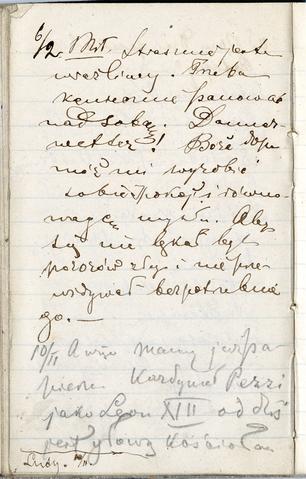 6/2. Mk. Strasznie jestem
wrażliwy. Trzeba
koniecznie panować
nad sobą. Donner-
wetter! Boże dopo-
móż mi wyrobić
sobie spokój i równo-
wagę myśli. Aby
się nie lękać byt
pozorów złych i nie prze-
widywać bezpotrzebne-
go. —
10/II A więc mamy już pa-
pieża. Kardynał Pecci
jako Leon XIII od dziś
jest głową Kościoła